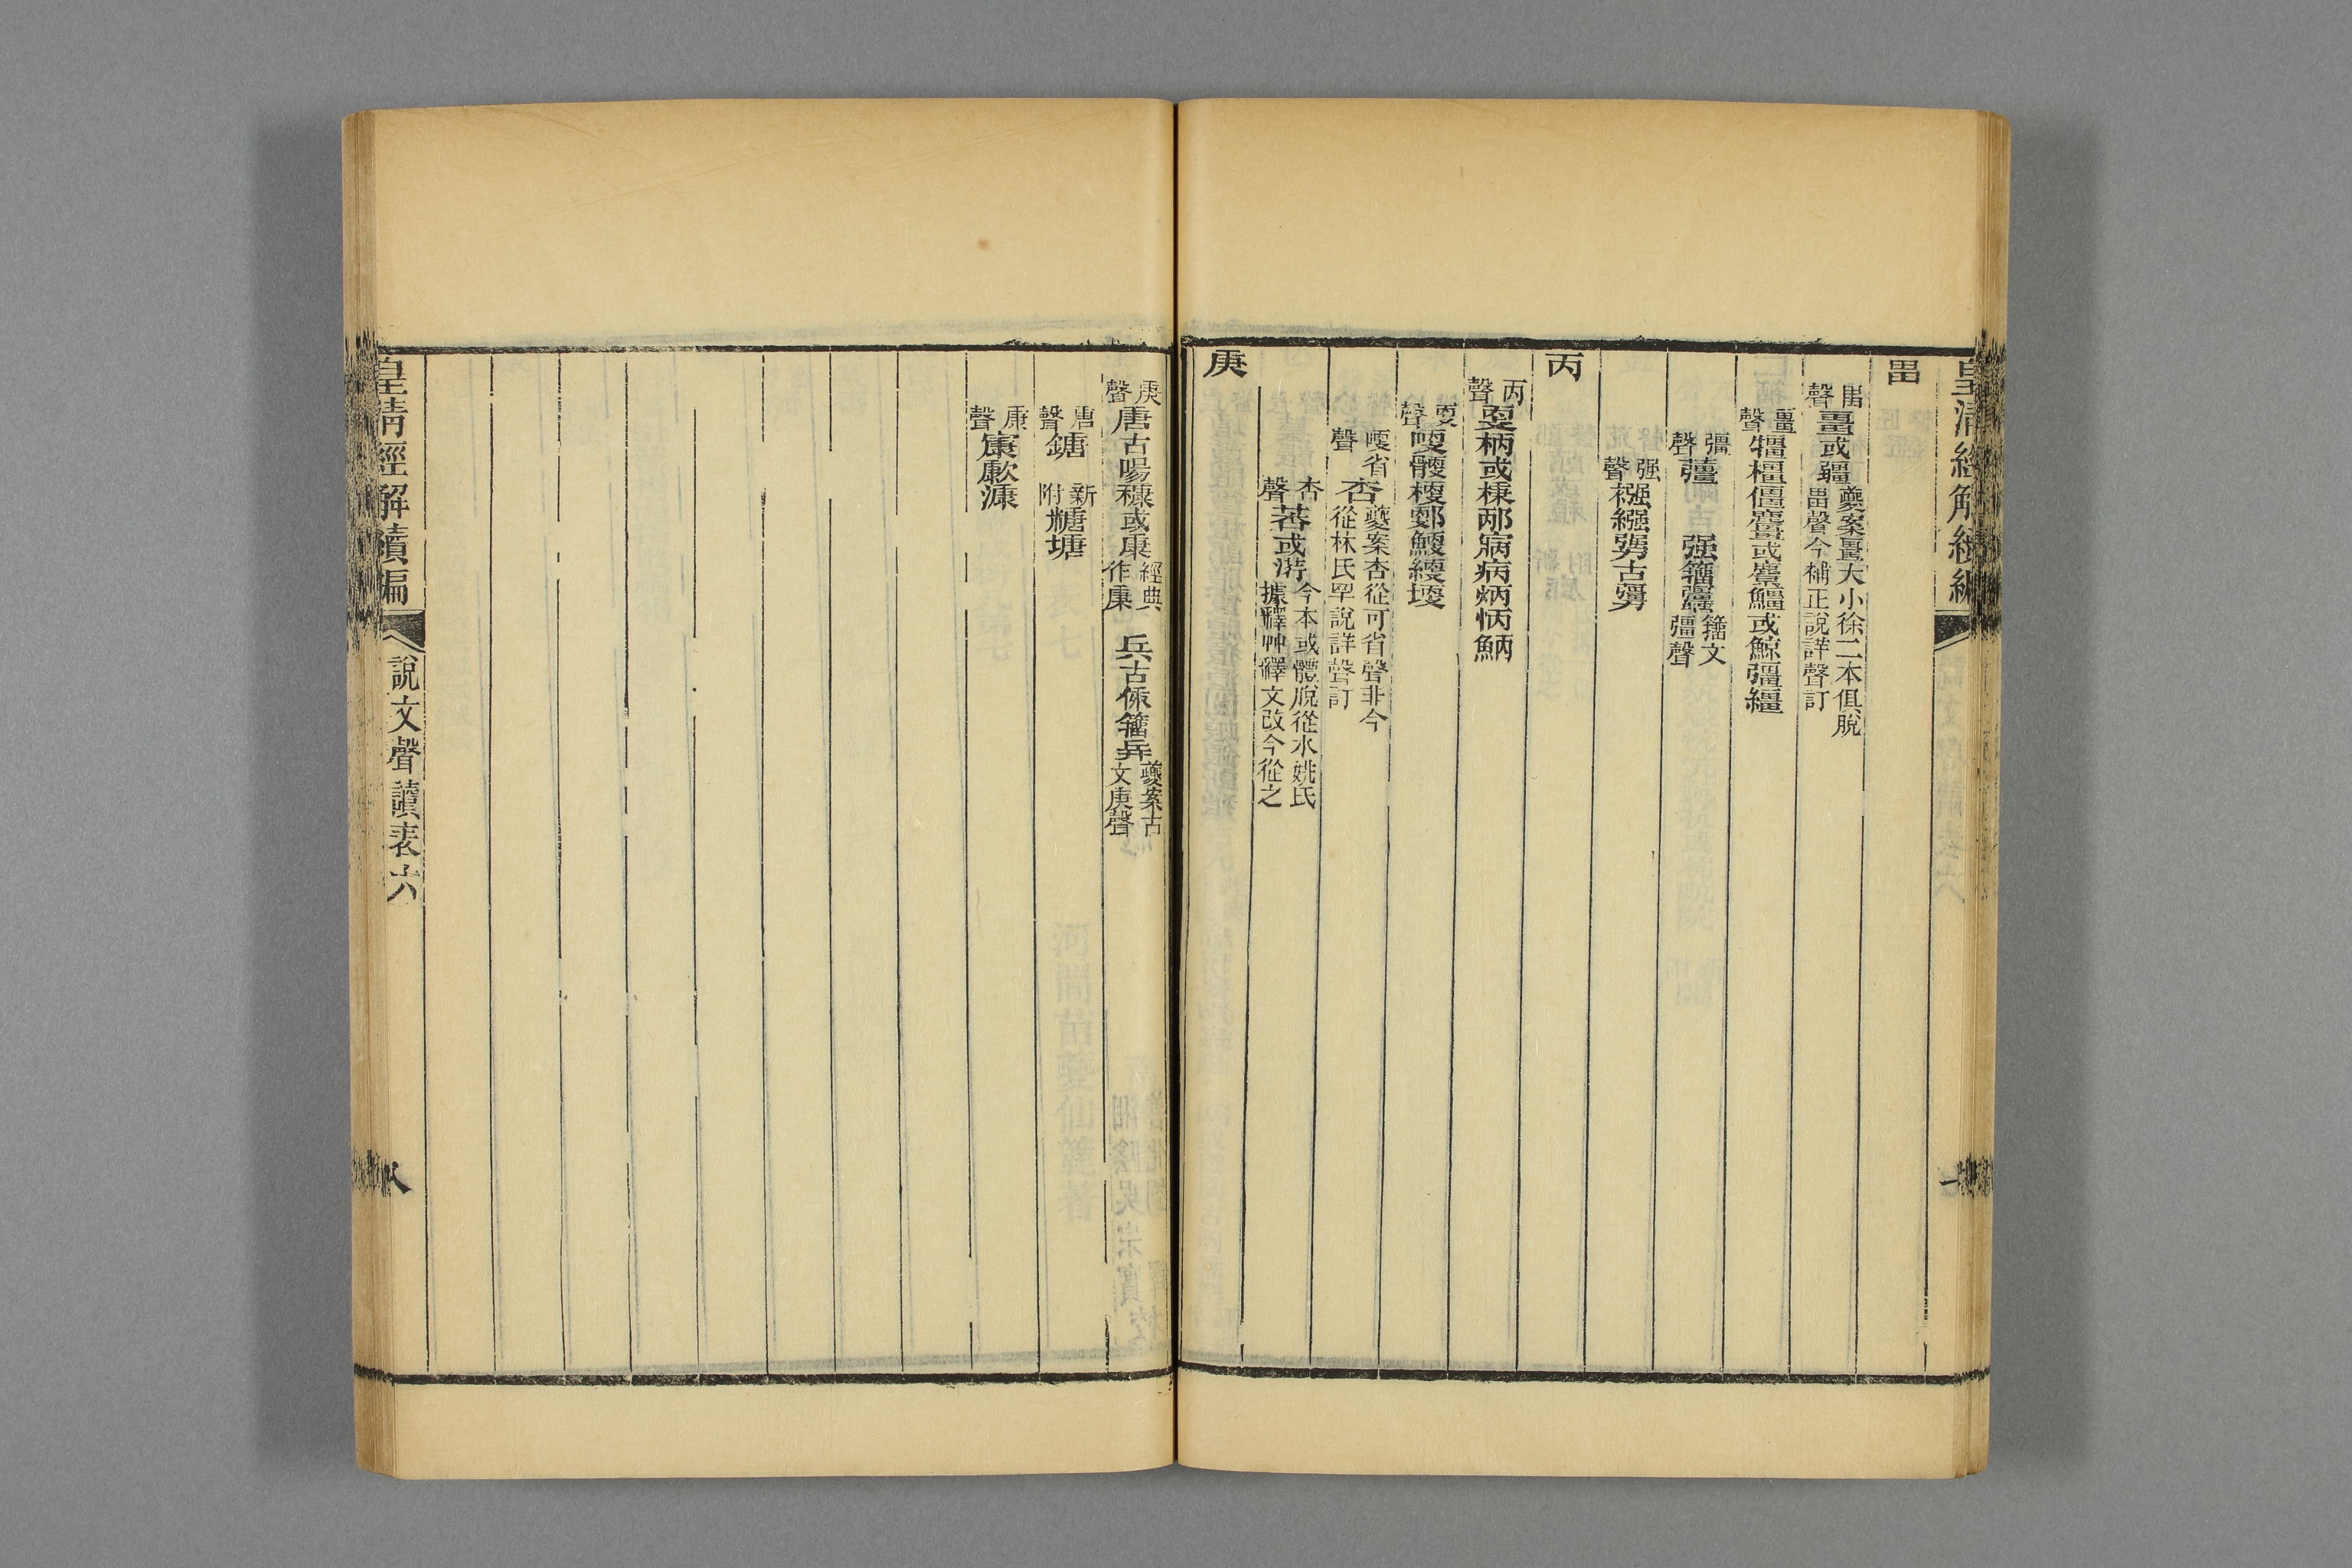 畕
畕聲畺或疆夔案畺大小徐二本俱脫畕聲今補正說詳聲訂
畺聲犝橿僵麠或麖鱷或鯨彊繮
彊聲蘠 强籀𧖑籀文彊聲
强聲襁繈勥古𠢬
丙
丙聲㪅柄或棅邴㾕病炳怲鮩
㪅聲哽骾梗郠鯁綆埂
哽省聲杏夔案杏從可省聲非今從林氏罕說詳聲訂
杏聲莕或䓷今本或體脫從水姚氏據釋艸釋文改今從之
庚
庚聲唐古啺穅或康經典作康 兵古𠈮籀𢍆夔案古文庚聲
唐聲鎕 新附糖塘
康聲㝩歑漮
皇清經解續編 說文聲讀表六 八